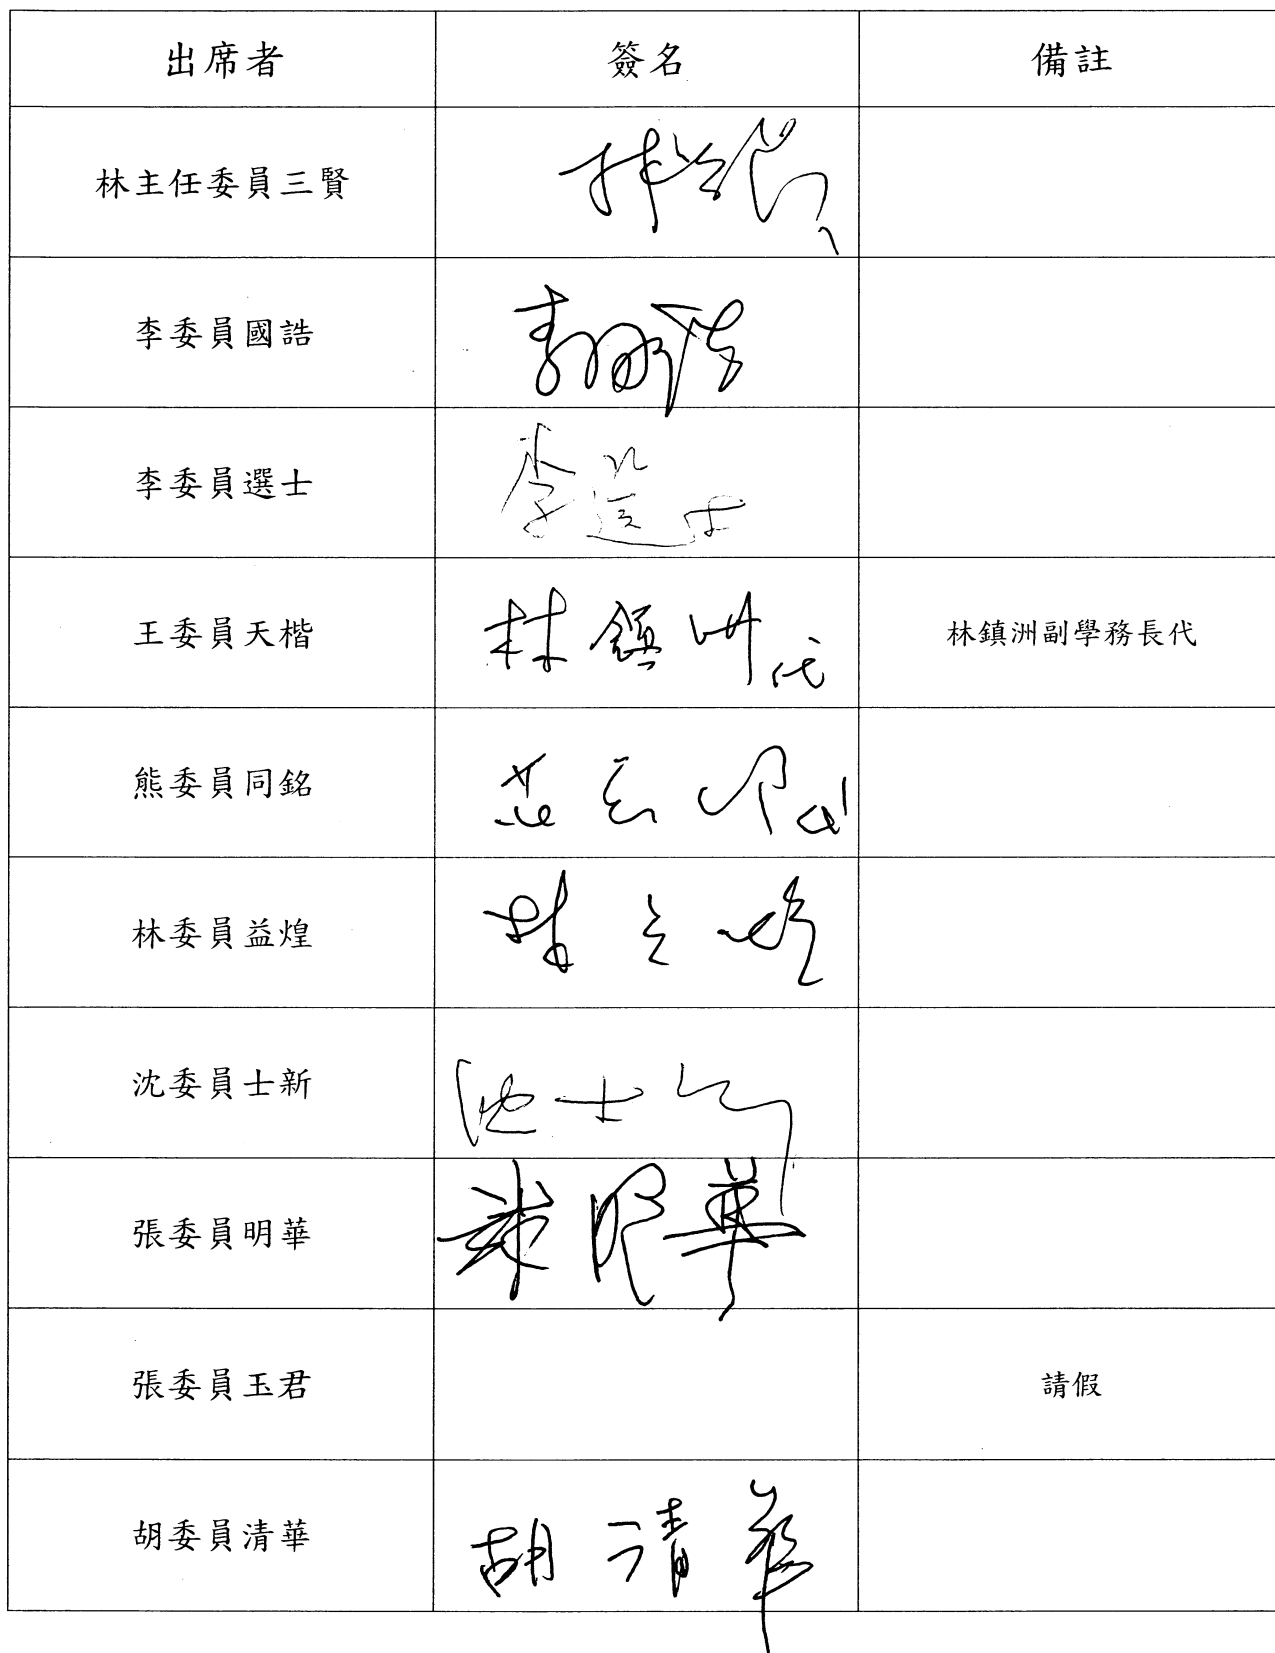 出席者 簽名 備註
林主任委員三賢
李委員國誥
李委員選士 李選士
王委員天楷 林鎮洲代 林鎮洲副學務長代
熊委員同銘
林委員益煌
沈委員士新 沈士新
張委員明華 張明華
張委員玉君 請假
胡委員清華 胡清華